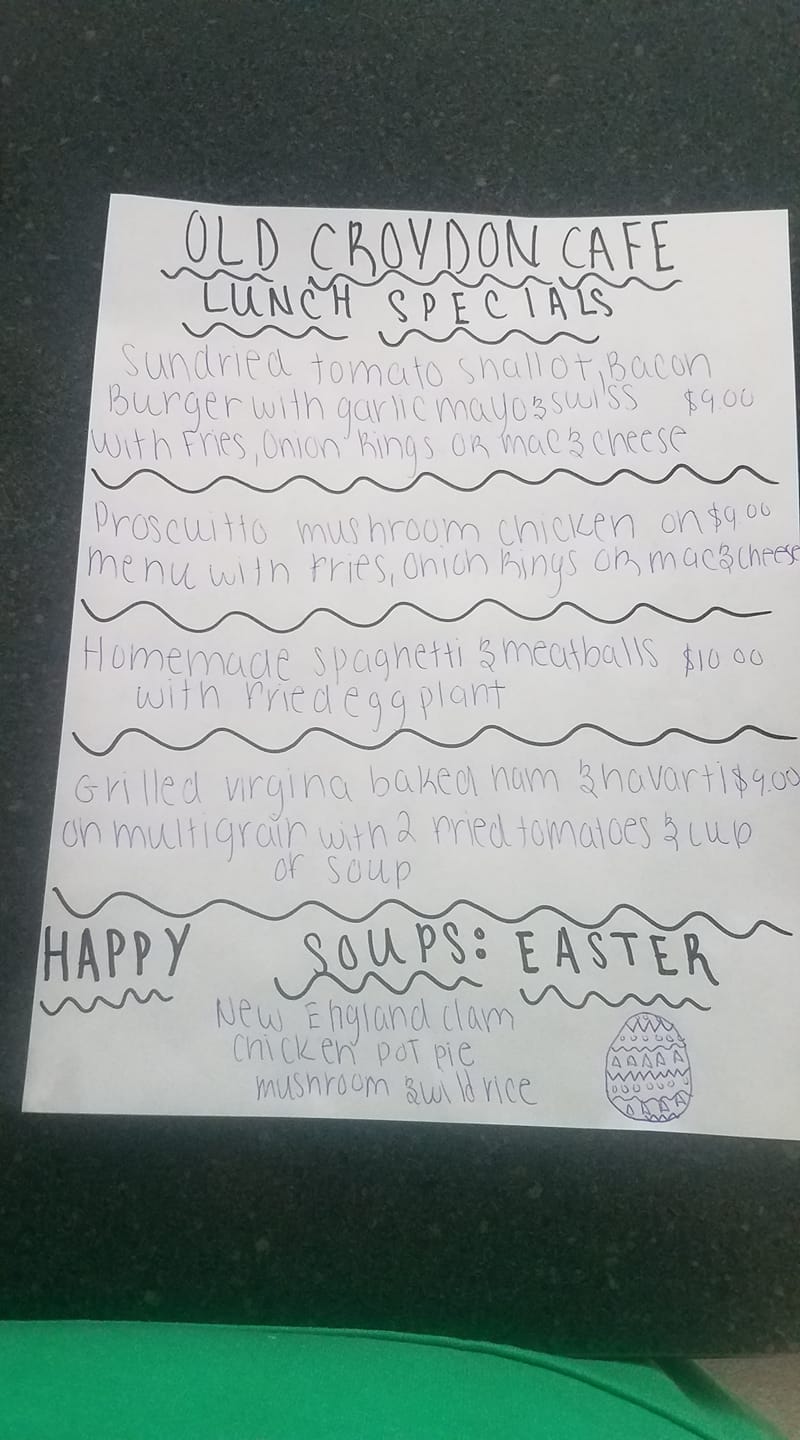 OLD CROYDON CAFE
LUNCH SPECIALS
Sundried tomato shallot, Bacon
Burger with garlic mayo & swiss $9.00
with Fries, Onion Rings OR mac & cheese
Proscuitto mushroom chicken on $9.00
menu with Fries, Onion Rings OR mac & cheese
Homemade spaghetti & meatballs $10.00
with Fried eggplant
Grilled virgina baked ham & havarti $9.00
on multigrain with 2 Fried tomatoes & cup
of soup
HAPPY SOUPS: EASTER
New England clam
Chicken pot pie
mushroom & wild rice